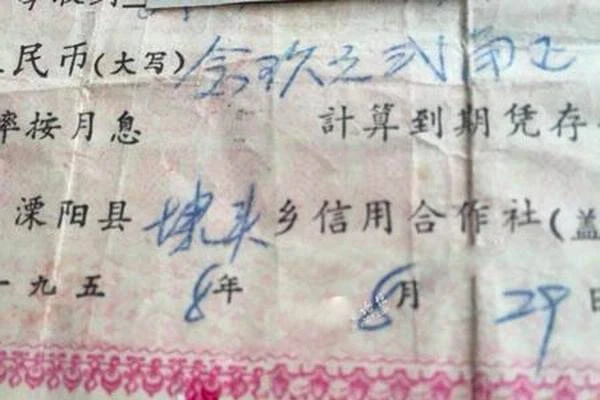 民币(大写)玖元弍角正
率按月息 計算到期凭存
溧阳县埭头乡信用合作社(盖
一九五8年8月29日